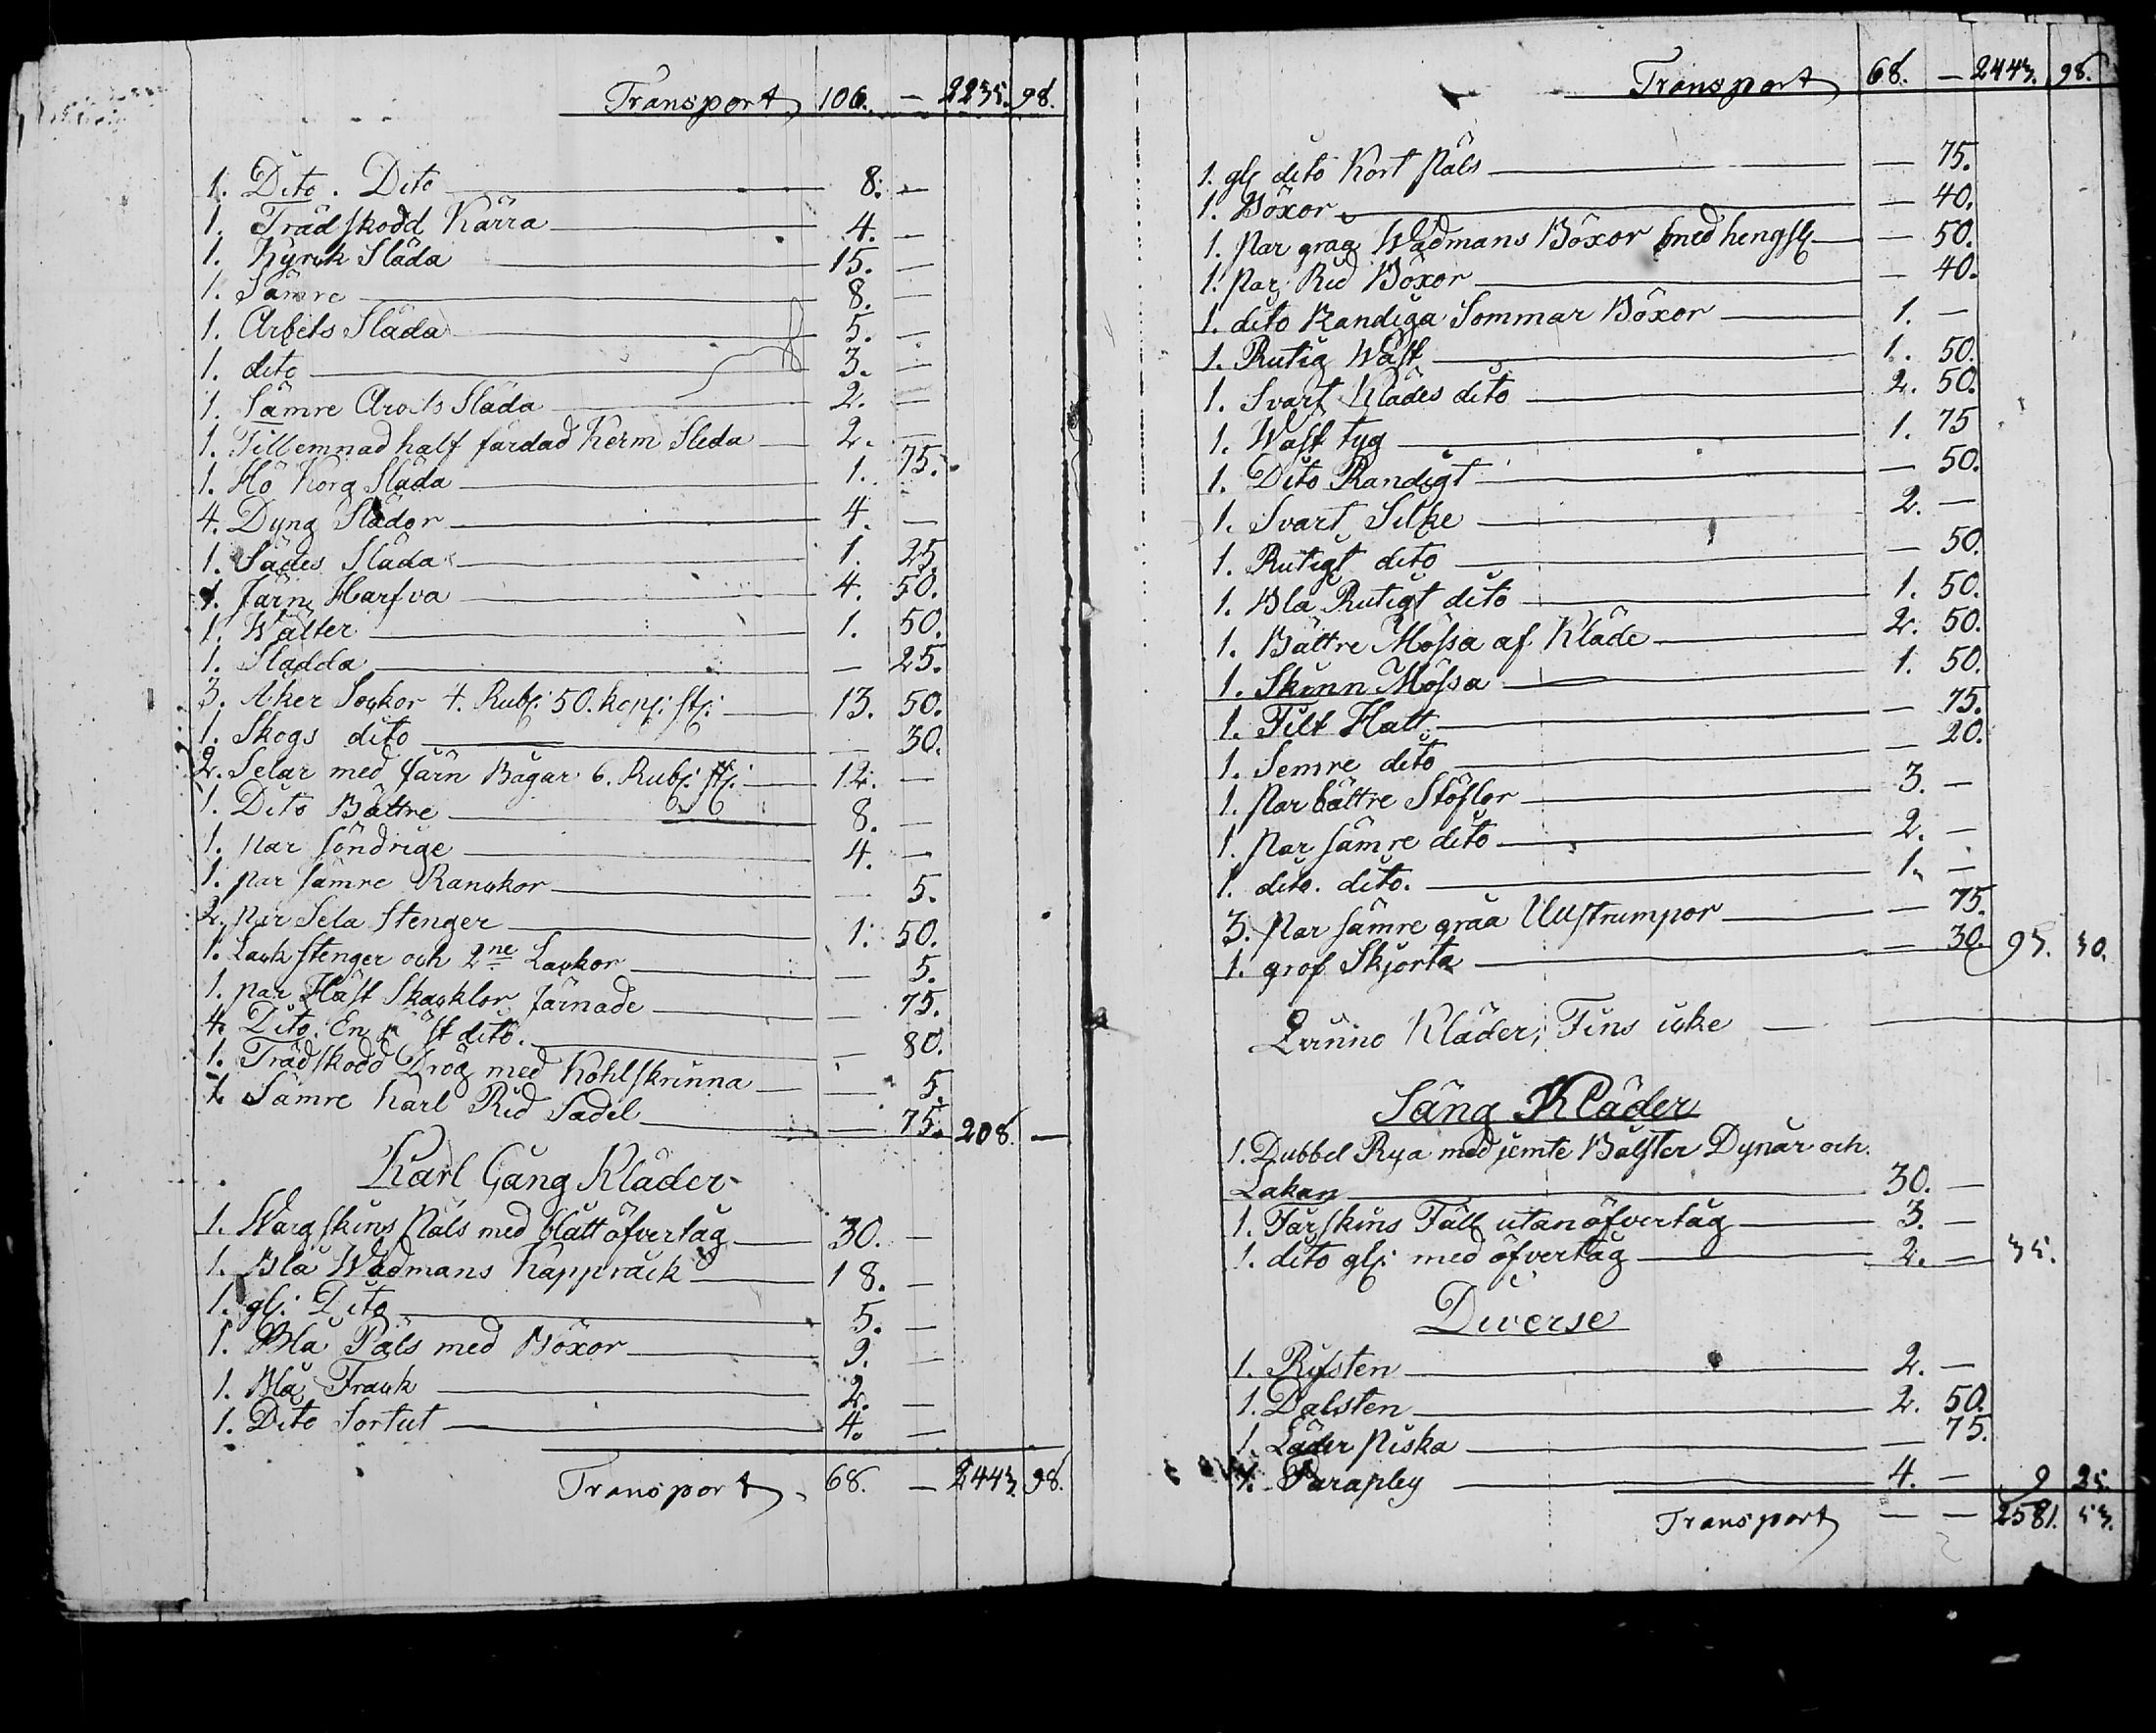 Transport 106. — 2235. 98.
1. Dito. Dito — 8. —
1. Träd skodd Kärra — 4. —
1. Kyrck Släda — 15. —
1. Sämre — 8. —
1. Arbets Släda — 5. —
1. dito — 3. —
1. Sämre Arbets Släda — 2. —
1. Till emnad half färdad Kerm Sleda — 2. —
1. Hö Korg Släda — 1. 75.
4. Dyng Slädor — 4. —
1. Sädes Släda — 1. 25.
1. Järn Harfva — 4. 50.
1. Wälter — 1. 50.
1. Sladda — — 25.
3. Åker Sockor 4. Rub: 50. kop: st: — 13. 50.
1. Skogs dito — — 30.
2. Selar med Järn Bågar 6. Rub: st: — 12. —
1. Dito Bättre — 8. —
1. par söndrige — 4. —
1. par sämre Ranckor — — 5.
2. par Sela Stenger — 1. 50.
1. Lack stenger och 2ne Lackor — — 5.
1. par Häst Skacklor Järnade — — 75.
4. Dito. En st dito. — — 80.
1. Trädskodd Drög med Kohlskrinna — — 5.
1. Sämre Karl Rid Sadel — — 75. 208. —
Karl Gång Kläder
1. Warg skins Päls med blått öfvertåg — 30. —
1. Blå Wadmans Kappråck — 18. —
1. gl: Dito — 5. —
1. Blå Päls med Böxor — 9. —
1. Blå Frack — 2. —
1. Dito Sortut — 4. —
Transport 68. — 2443. 98.
Transport 68. — 2443. 98.
1. gl: dito Kort Päls — — 75.
1. Böxor — — 40.
1. Par graa Wadmans Böxor med hengsl — — 50.
1. Par Rid Böxor — — 40.
1. dito Randiga Sommar Böxor — 1. —
1. Rutig Wäst — 1. 50.
1. Svart Klädes dito — 2. 50.
1. Wäst tyg — 1. 75
1. Dito Randigt — — 50.
1. Svart Silke — 2. —
1. Rutigt dito — — 50.
1. Blå Rutigt dito — 1. 50.
1. Bättre Mössa af Kläde — 2. 50.
1. Skinn Mössa — 1. 50.
1. Filt Hatt — — 75.
1. Semre dito — — 20.
1. Par bättre Stöflor — 3. —
1. Par sämre dito — 2. —
1. dito. dito. — 1. —
3. Par sämre graa Ullstrumpor — — 75.
1. grof Skjorta — — 30. 93. 30.
Qvinno Kläder, Fins icke —
Säng Kläder
1. Dubbel Rya med jemte Bålster Dynar och
Lakan — 30. —
1. Fårskins Fäll utan öfvertåg — 3. —
1. dito gl: med öfvertåg — 2. — 35.
Diverse
1. Rifsten — 2. —
1. Dalsten — 2. 50.
1. Läder Piska — — 75.
1. Parapley — 4. — 9 25.
Transport — — 2581. 53.